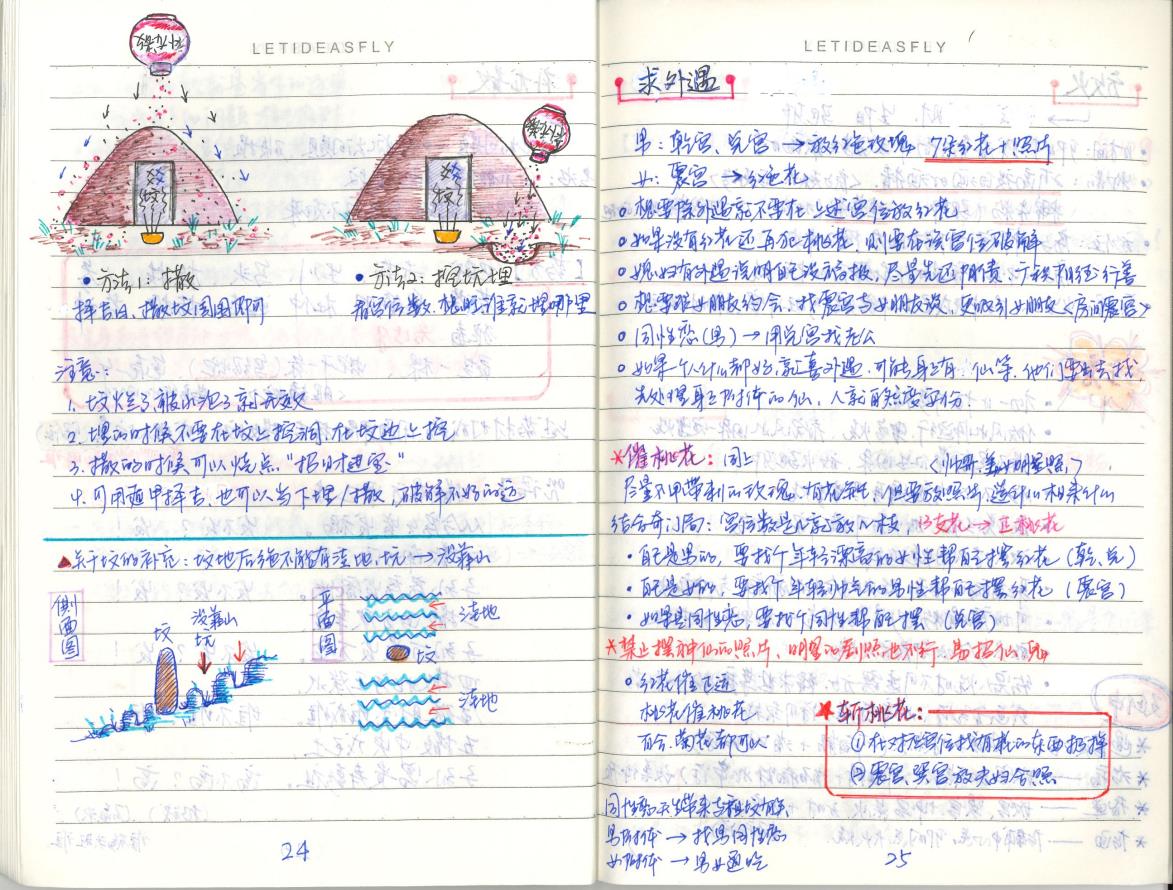 LETIDEASFLY
补龙散
补龙散
方法1:撒
择吉日,撒坟周围即可
方法2:挖坑埋
看宫位数,想旺谁就埋哪里
注意:
1. 坟烂了被水泡了就无效
2. 埋的时候不要在坟上挖洞,在坟边上挖
3. 撒的时候可以烧点"招财进宝"
4. 可用遁甲择吉,也可以当下埋/撒,破解不好的运
▲关于坟的补充:坟地后绝不能有洼地、坑 → 没靠山
側面图
坟
没靠山
坑
平面图
洼地
坟
洼地
24
LETIDEASFLY
求外遇
男:乾宫、兑宫 → 放红色玫瑰 7朵红花+照片
女:震宫 → 红色花
想要除外遇就不要在上述宫位放红花
如果没有红花还再犯桃花,则要在该宫位破解
媳妇有外遇说明自己没福报,尽量先还阴债
想要跟女朋友约会,找震宫与女朋友谈,更吸引女朋友<房间震宫>
同性恋(男) → 用兑宫找老公
如果一个人什么都好,就喜外遇,可能身上有 仙等,他们要出去找
先处理身上附体的仙,人就自然变安份.
*催桃花:同上
尽量不用带刺的玫瑰 但要放照片,造什么相来什么
结合奇门局:宫位数是几就放几枝, 13支花 → 正桃花
·自己是男的,要找个年轻漂亮的女性帮自己摆红花(乾、兑)
·自己是女的,要找个年轻帅气的男性帮自己摆红花(震宫)
·如果是同性恋,要找个同性帮自己摆(兑宫)
*禁止摆神仙的照片、明星的剧照也不行,易招仙、鬼
·红花催正运
桃花催桃花
百合、菊花都可以
*斩桃花:
①在对应宫位找有桃的东西扔掉
②震宫、巽宫放夫妇合照
同性恋天生带来与祖坟有关
男附体 → 找男同性恋
女附体 → 男女通吃
25